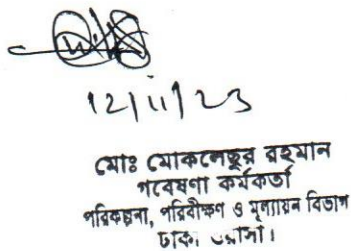 12/11/23
মোঃ মোকলেছুর রহমান
গবেষণা কর্মকর্তা
পরিকল্পনা, পরিবীক্ষণ ও মূল্যায়ন বিভাগ
ঢাকা ওয়াসা।